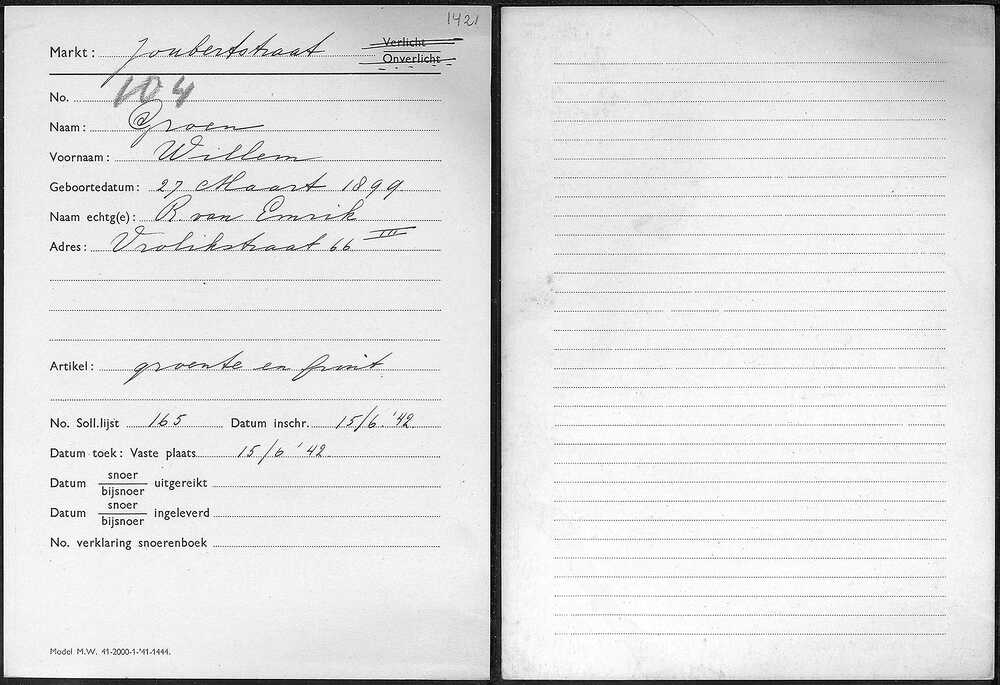 1421
Markt: Joubertstraat Verlicht
Onverlicht
No. 104
Naam: Groen
Voornaam: Willem
Geboortedatum: 27 Maart 1899
Naam echtg(e): R. van Emrik
Adres: Vrolikstraat 66 III
Artikel: groente en fruit
No. Soll.lijst 165 Datum inschr. 15/6.'42
Datum toek: Vaste plaats 15/6 '42
Datum snoer/bijsnoer uitgereikt
Datum snoer/bijsnoer ingeleverd
No. verklaring snoerenboek
Model M.W. 41-2000-1-'41-1444.